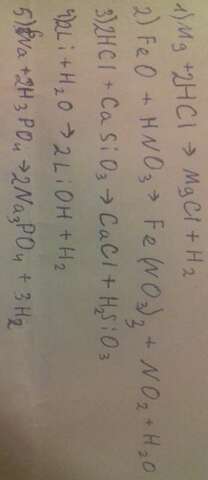 1) Mg + 2HCl → MgCl + H₂
2) FeO + HNO₃ → Fe(NO₃)₃ + NO₂ + H₂O
3) 2HCl + CaSiO₃ → CaCl + H₂SiO₃
4) 2Li + H₂O → 2LiOH + H₂
5) 6Na + 2H₃PO₄ → 2Na₃PO₄ + 3H₂